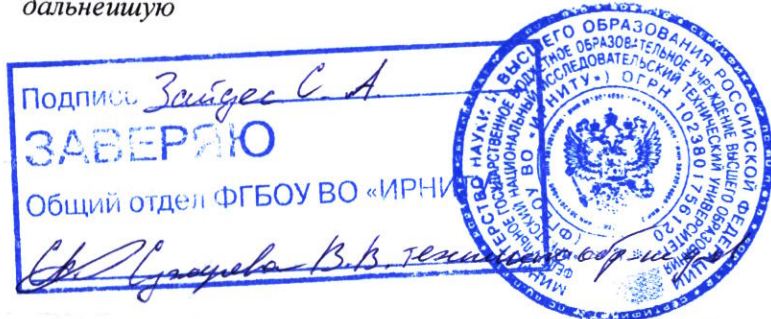 дальнейшую
Подпись Зайдес С. А.
ЗАВЕРЯЮ
Общий отдел ФГБОУ ВО «ИРНИТУ»
В.В.
МИНИСТЕРСТВО НАУКИ И ВЫСШЕГО ОБРАЗОВАНИЯ РОССИЙСКОЙ ФЕДЕРАЦИИ
ГОСУДАРСТВЕННОЕ БЮДЖЕТНОЕ ОБРАЗОВАТЕЛЬНОЕ УЧРЕЖДЕНИЕ ВЫСШЕГО ОБРАЗОВАНИЯ
НАЦИОНАЛЬНЫЙ ИССЛЕДОВАТЕЛЬСКИЙ ТЕХНИЧЕСКИЙ УНИВЕРСИТЕТ
(ФГБОУ ВО «ИРНИТУ») ОГРН 1023801756120